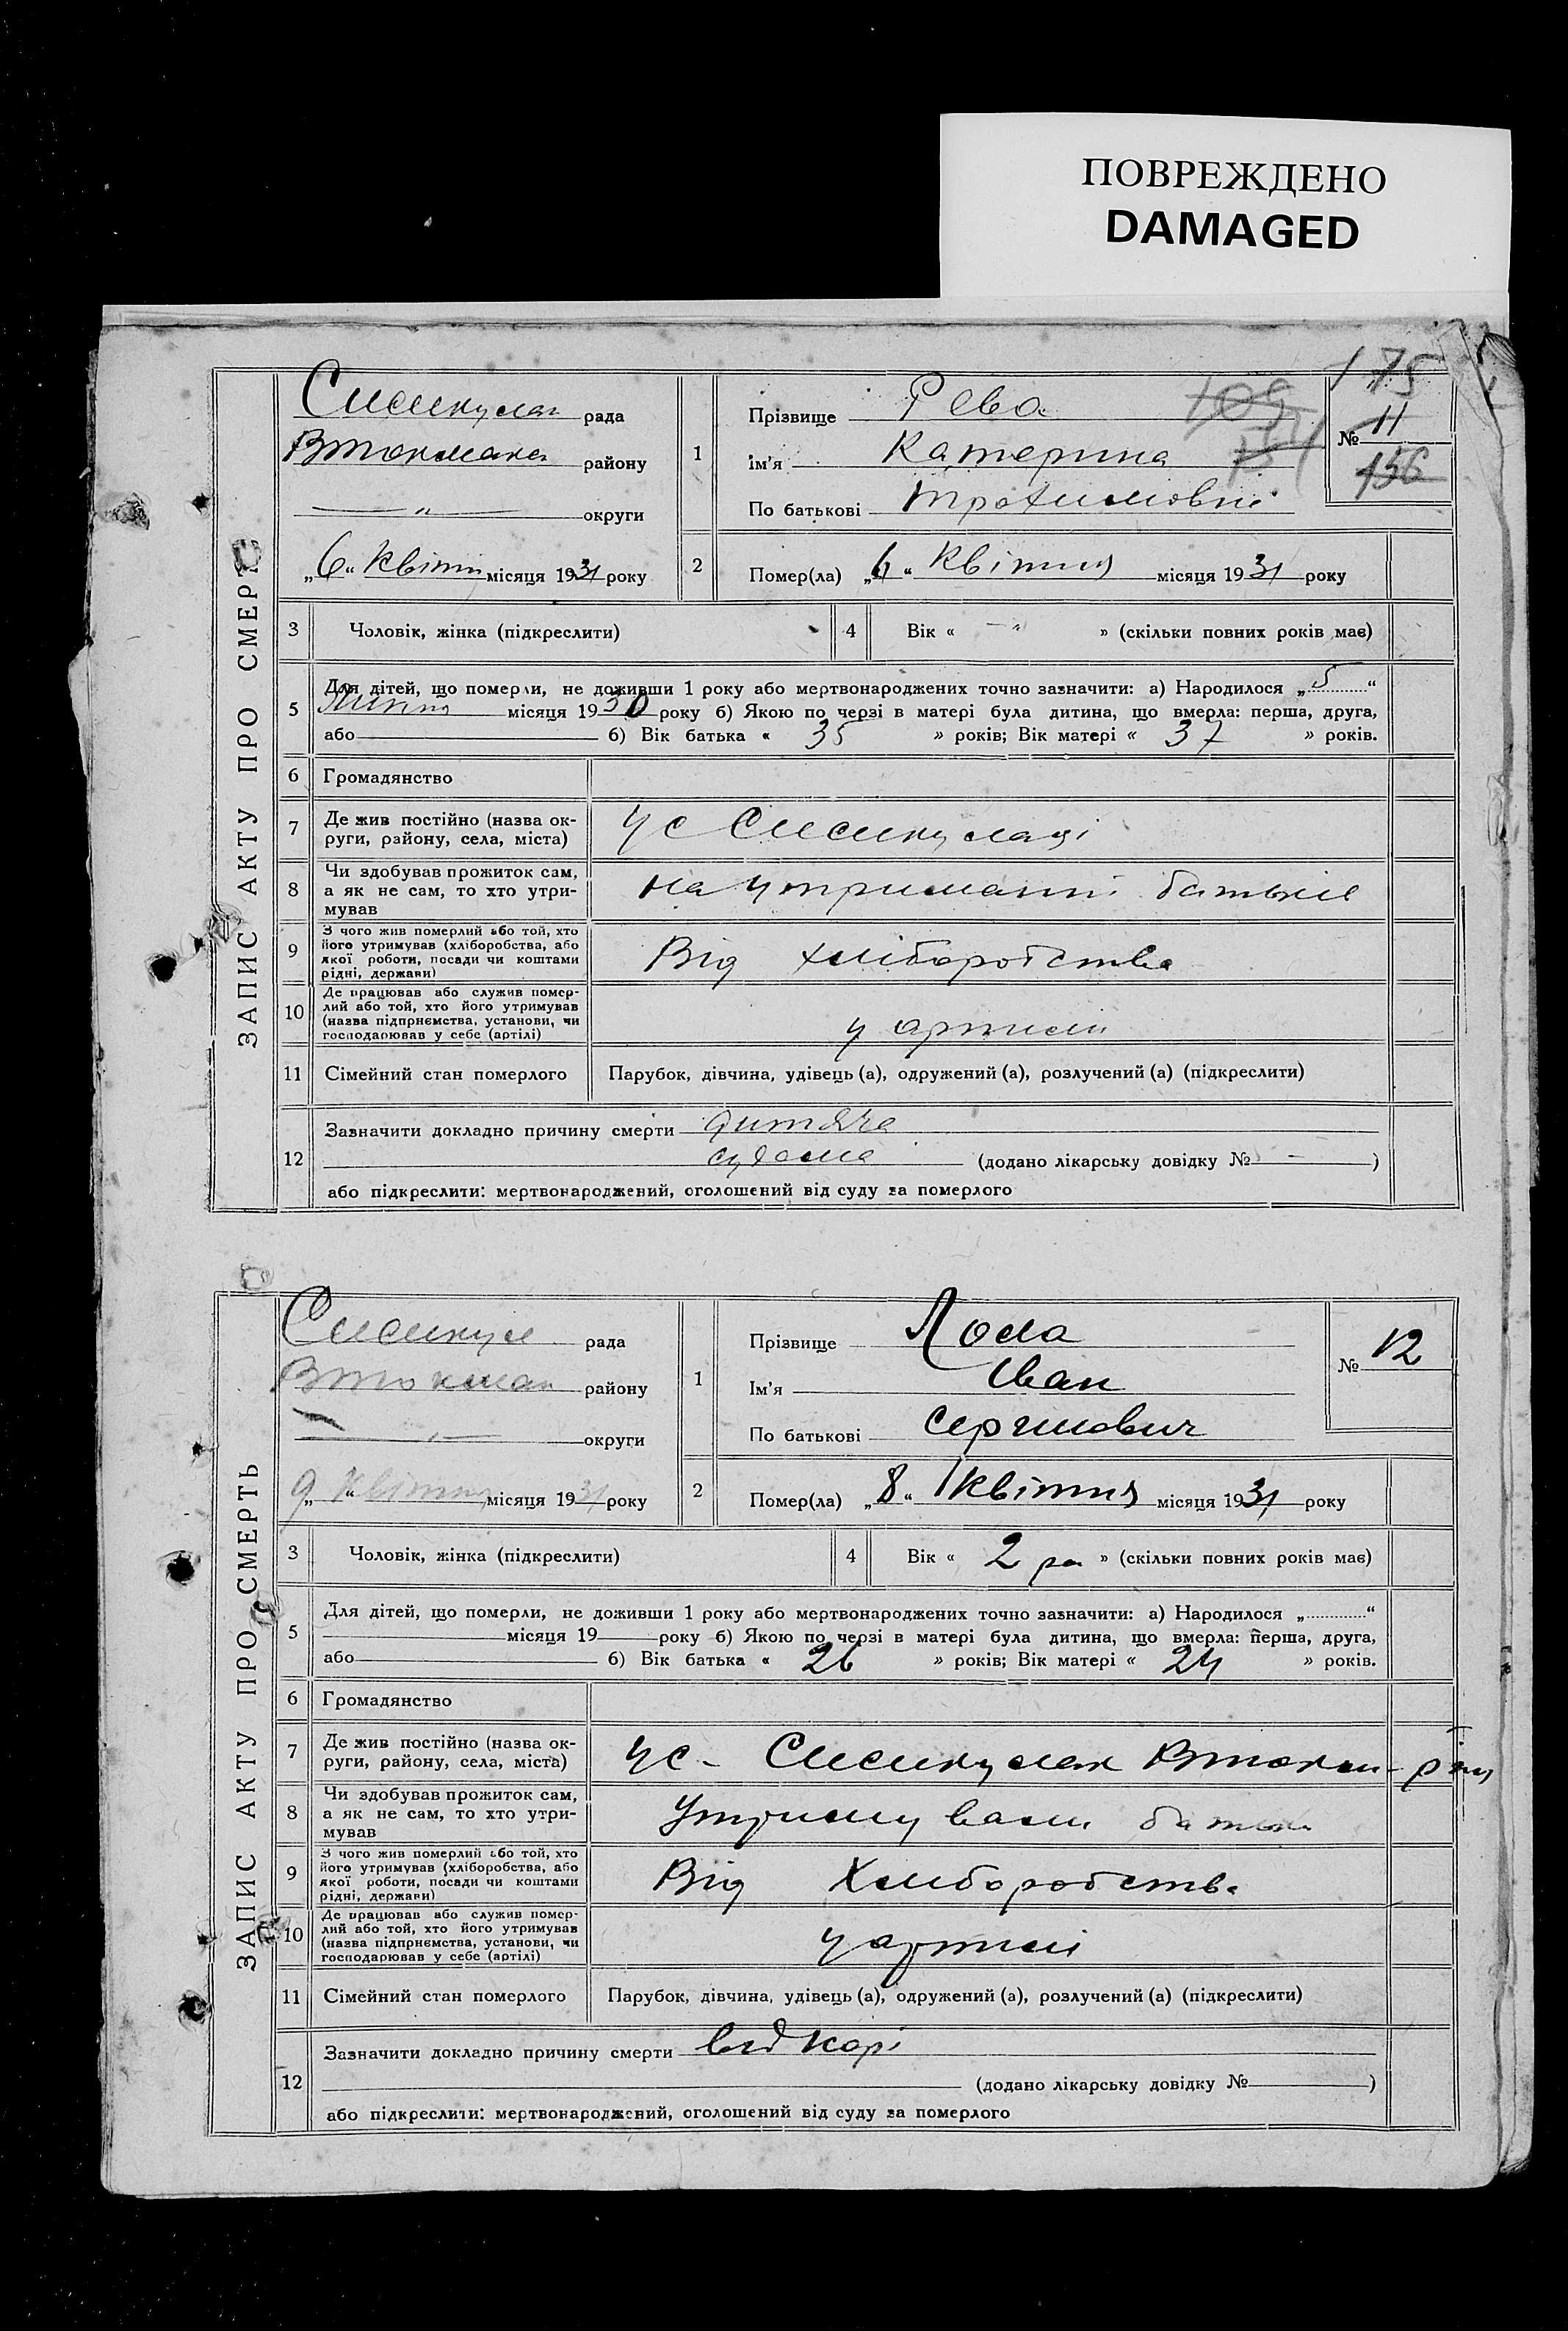 ПОВРЕЖДЕНО
DAMAGED
175
ЗАПИС АКТУ ПРО СМЕРТЬ
рада
Втокмак району
— „ — округи
„6“ Квітн місяця 1931 року
1
Прізвище Рева
Ім'я Катерина
По батькові Трохимовна
109
154
№ 11
156
2
Помер(ла) „6“ Квітня місяця 1931 року
3 Чоловік, жінка (підкреслити)
4 Вік « — " » (скільки повних років має)
5
Для дітей, що померли, не доживши 1 року або мертвонароджених точно зазначити: а) Народилося „5“
Липня місяця 1930 року б) Якою по черзі в матері була дитина, що вмерла: перша, друга,
або б) Вік батька « 35 » років; Вік матері « 37 » років.
6 Громадянство
7
Де жив постійно (назва ок-
руги, району, села, міста)
У с
8
Чи здобував прожиток сам,
а як не сам, то хто утри-
мував
на утриманні батьків
9
З чого жив померлий або той, хто
його утримував (хліборобства, або
якої роботи, посади чи коштами
рідні, держави)
Від хліборобства
10
Де працював або служив помер-
лий або той, хто його утримував
(назва підприємства, установи, чи
господарював у себе (артілі)
у артилі
11 Сімейний стан померлого
Парубок, дівчина, удівець (а), одружений (а), розлучений (а) (підкреслити)
12
Зазначити докладно причину смерти дитяча
судома (додано лікарську довідку № - )
або підкреслити: мертвонароджений, оголошений від суду за померлого
ЗАПИС АКТУ ПРО СМЕРТЬ
рада
Втокмак району
— „ — округи
9 „ Квітня місяця 1931 року
1
Прізвище Лома
Ім'я Іван
По батькові Сергиович
№ 12
2
Помер(ла) „8“ Квітня місяця 1931 року
3 Чоловік, жінка (підкреслити)
4 Вік « 2 ро » (скільки повних років має)
5
Для дітей, що померли, не доживши 1 року або мертвонароджених точно зазначити: а) Народилося „ “
місяця 19 року б) Якою по черзі в матері була дитина, що вмерла: перша, друга,
або б) Вік батька « 26 » років; Вік матері « 24 » років.
6 Громадянство
7
Де жив постійно (назва ок-
руги, району, села, міста)
У с-
8
Чи здобував прожиток сам,
а як не сам, то хто утри-
мував
Утримували батьки
9
З чого жив померлий або той, хто
його утримував (хліборобства, або
якої роботи, посади чи коштами
рідні, держави)
Від Хлиборобства
10
Де працював або служив помер-
лий або той, хто його утримував
(назва підприємства, установи, чи
господарював у себе (артілі)
у артилі
11 Сімейний стан померлого
Парубок, дівчина, удівець (а), одружений (а), розлучений (а) (підкреслити)
12
Зазначити докладно причину смерти від Корі
(додано лікарську довідку № )
або підкреслити: мертвонароджений, оголошений від суду за померлого